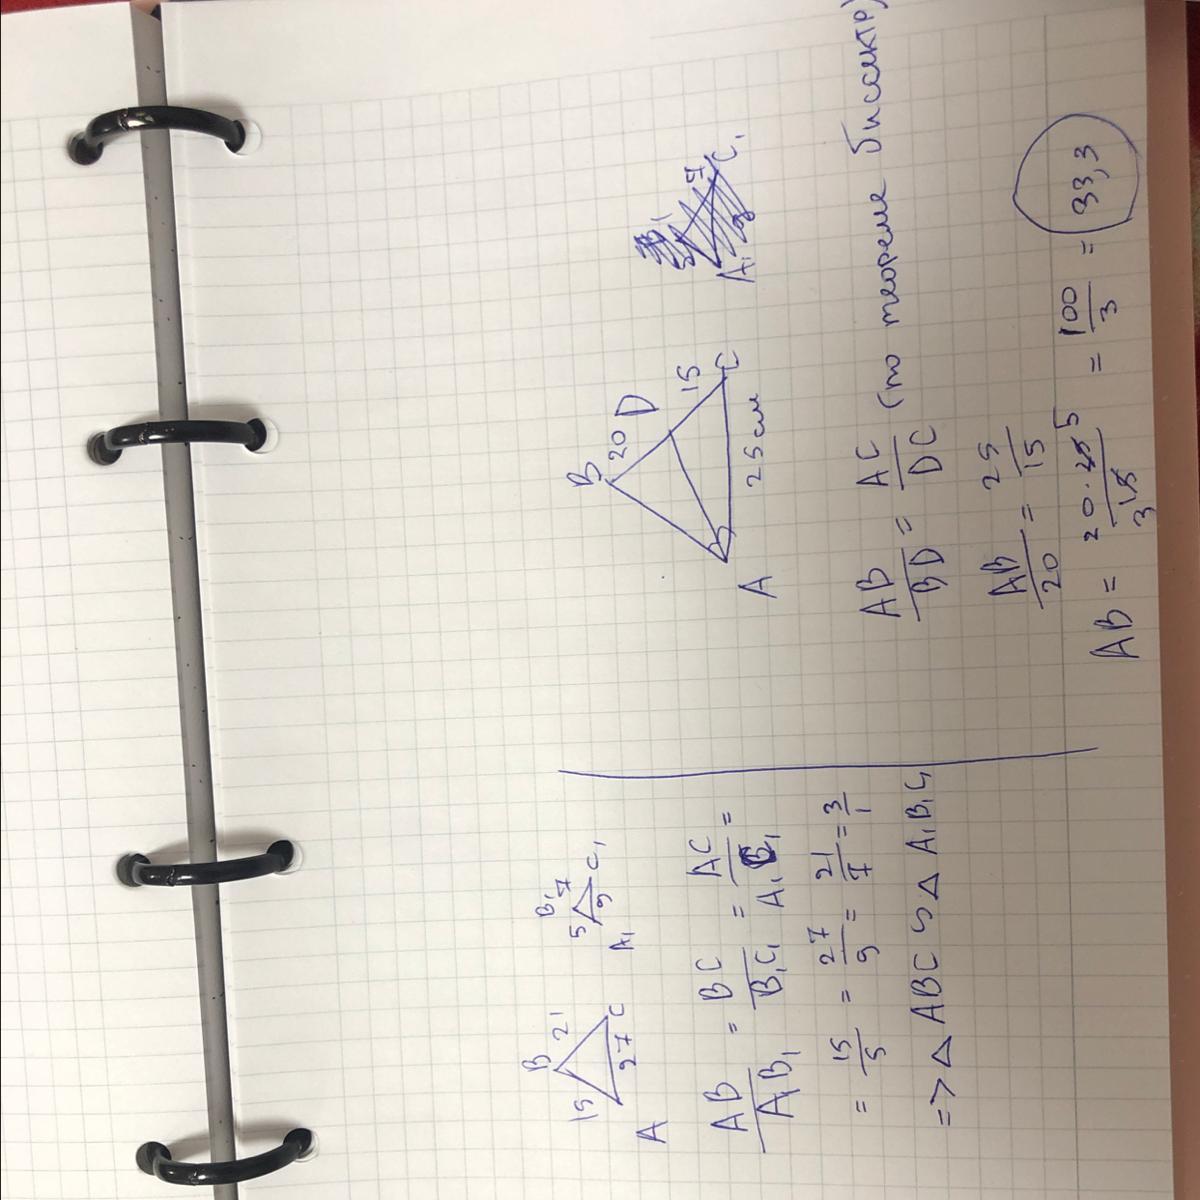 B
15 21
27
A C
B₁
5 7
9
A₁ C₁
AB/A₁B₁ = BC/B₁C₁ = AC/A₁C₁ =
= 15/5 = 27/9 = 21/7 = 3/1
=> △ ABC ∽ △ A₁B₁C₁
B
20 D
15
C
25 см
A
B₁
5 7
9
A₁ C₁
AB/BD = AC/DC (по теореме биссектр)
AB/20 = 25/15
AB = 20·25 5/3 15 = 100/3 = 33,3